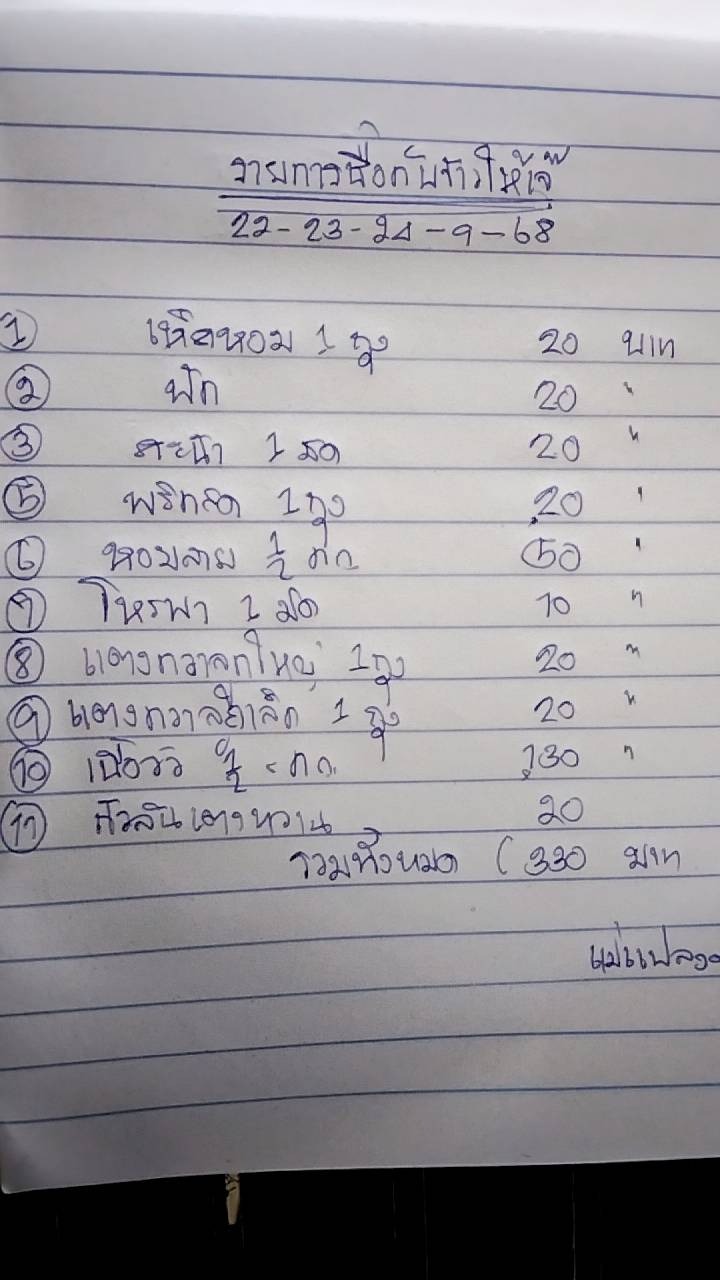 รายการซื้อกับข้าวให้เจ๊
22-23-24-9-68
① เห็ดหอม 1 ถุง 20 บาท
② ฟัก 20 "
③ คะน้า 1 มัด 20 "
⑤ พริกสด 1 ถุง 20 "
⑥ หอมลาย ½ กก 50 "
⑦ โหรพา 1 มัด 10 "
⑧ แตงกวาลูกใหญ่ 1 ถุง 20 "
⑨ แตงกวาลูกเล็ก 1 ถุง 20 "
⑩ เนื้อวัว ½ กก. 130 "
⑪ 20
รวมทั้งหมด (330 บาท